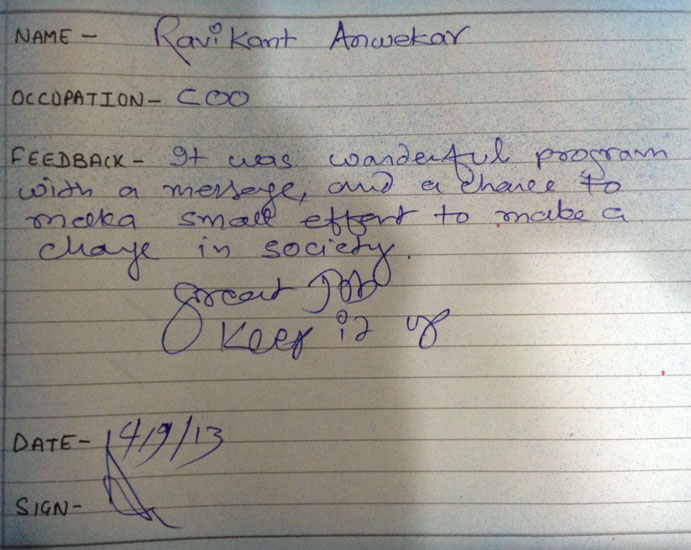 NAME - Ravi Kant Anwekar
OCCUPATION - COO
FEEDBACK - It was wanderful program
with a message, and a chance to
meeka small effort to make a
change in society.
Great Job
Keep it up
DATE - 14/9/13
SIGN -